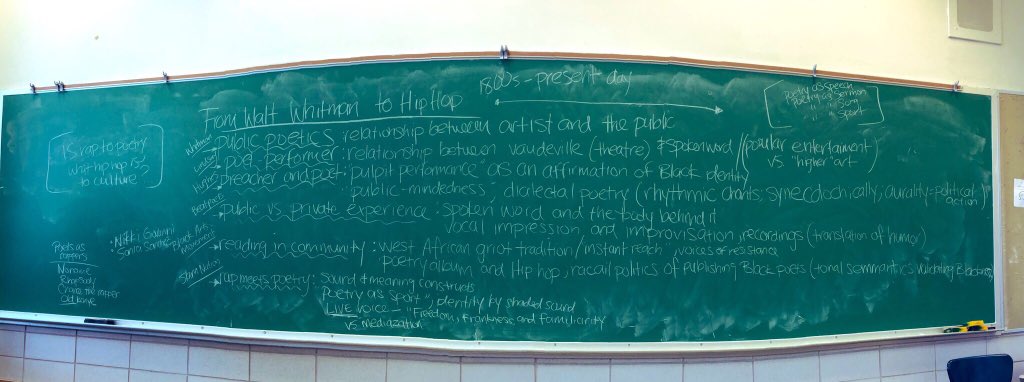 From Walt Whitman to Hip Hop
1800s - present day
Poetry as speech
Poetry as sermon
" " song
" " sport
"Is rap to poetry
what hip hop is
to culture?"
Whitman
public poetics: relationship between artist and the public
Lindsay
poet-performer: relationship between vaudeville (theatre) & spoken word // popular entertaiment
vs "higher" art
Hughes
preacher and poet: "pulpit performance" as an affirmation of Black identity
"public-mindedness", dialectal poetry (rhythmic chants; synecdochically, aurality = political
action)
Beatniks
public vs. private experience: spoken word and the body behind it
vocal impression, and improvisation, recordings (translation of humor)
reading in community: West African griot tradition / instant reach, voices of resistance
poetry/album and Hip hop, racail politics of publishing Black poets (tonal semmantics validating Blackness)
• Nikki Giovanni
• Sonia Sanchez
Black Arts
Movement
Slam Nation
rap meets poetry: Sound & meaning constructs
"Poetry as sport", identity by shaded sound
LIVE voice - "Freedom, Frankness, and Familiarity
vs mediazation
Poets as
rappers
Noname
Rhapsody
Chance the rapper